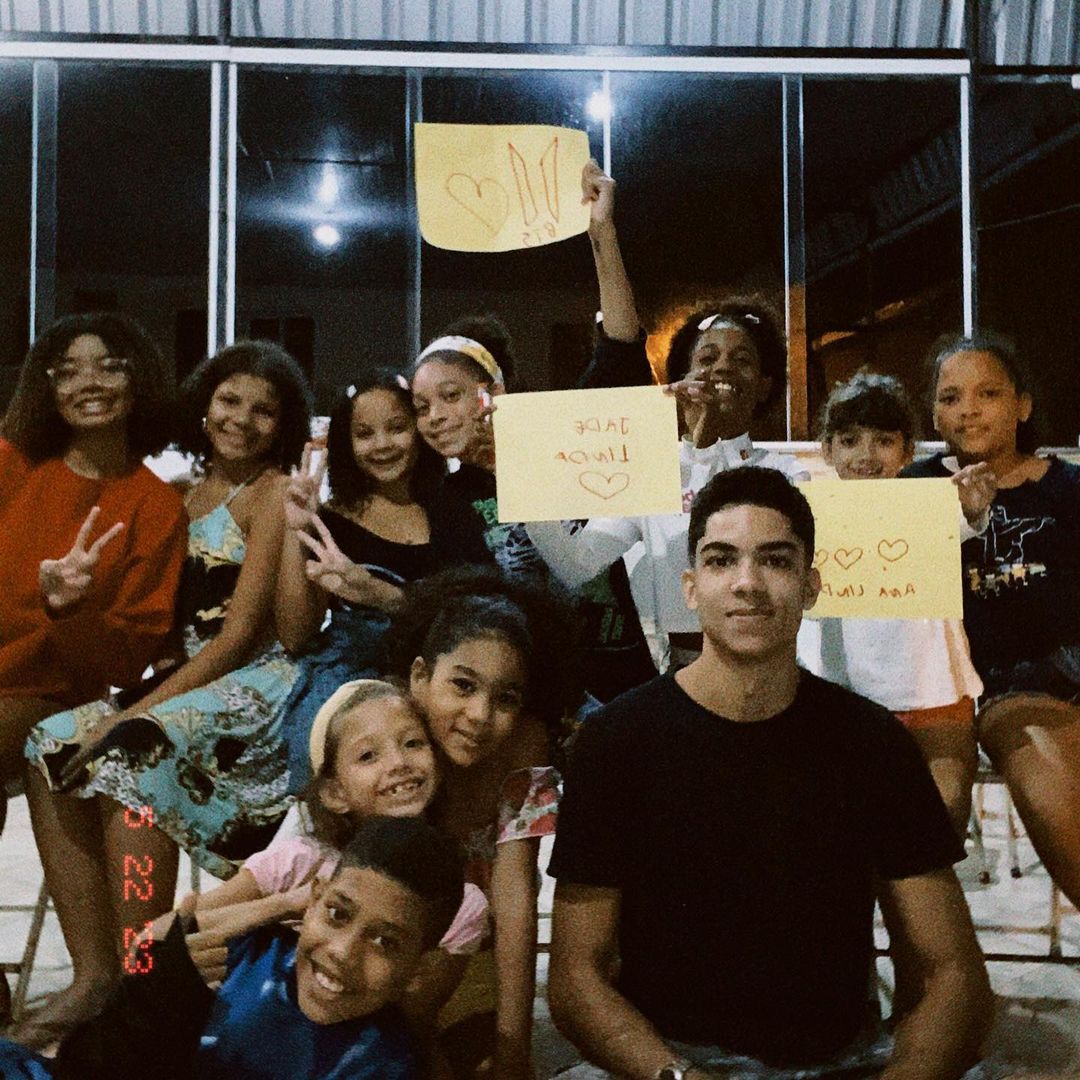 BTS
JADE
LINDA
ANA LIND
5 22 23